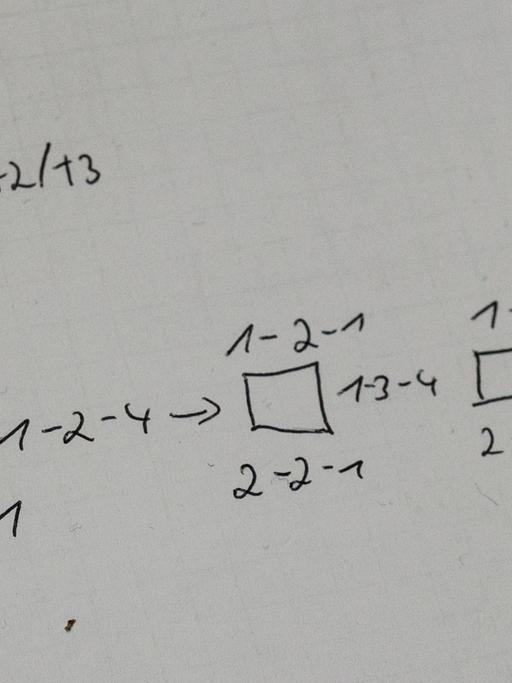 -2/+3
1-2-1
1-
1-2-4 → 1-3-4
2-2-1
2
1